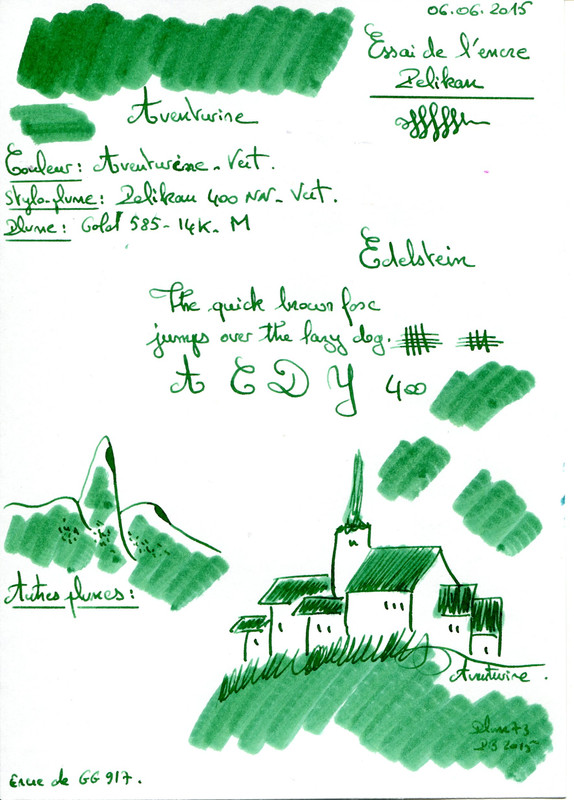 06.06.2015
Essai de l'encre
Pelikan
Aventurine
Couleur: Aventurine - Vert.
Stylo-plume: Pelikan 400 NN - Vert.
Plume: Gold 585 - 14K - M
Edelstein
The quick brown fox
jumps over the lazy dog.
A E D Y 400
Autres plumes:
Aventurine.
Plume 73
PB 2015
Encre de GG 917.